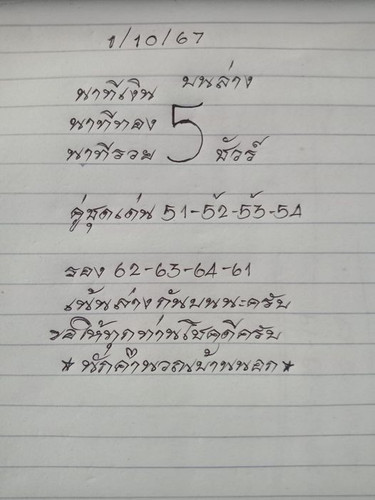 1/10/67
บนล่าง
นาทีเงิน
นาทีทอง 5
นาทีรวย ชัวร์
คู่ชุดเด่น 51-52-53-54
รอง 62-63-64-61
เน้นล่างกันบนนะครับ
ขอให้ทุกท่านโชคดีครับ
* นักคำนวณบ้านนอก *